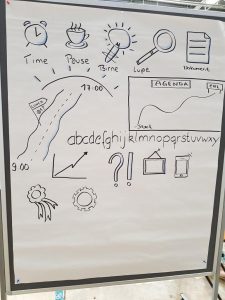 Time Pause Birne Lupe Dokument
17:00
AGENDA
ZIEL
Start
abcdefghijklmnopqrstuvwxy
9:00
?!